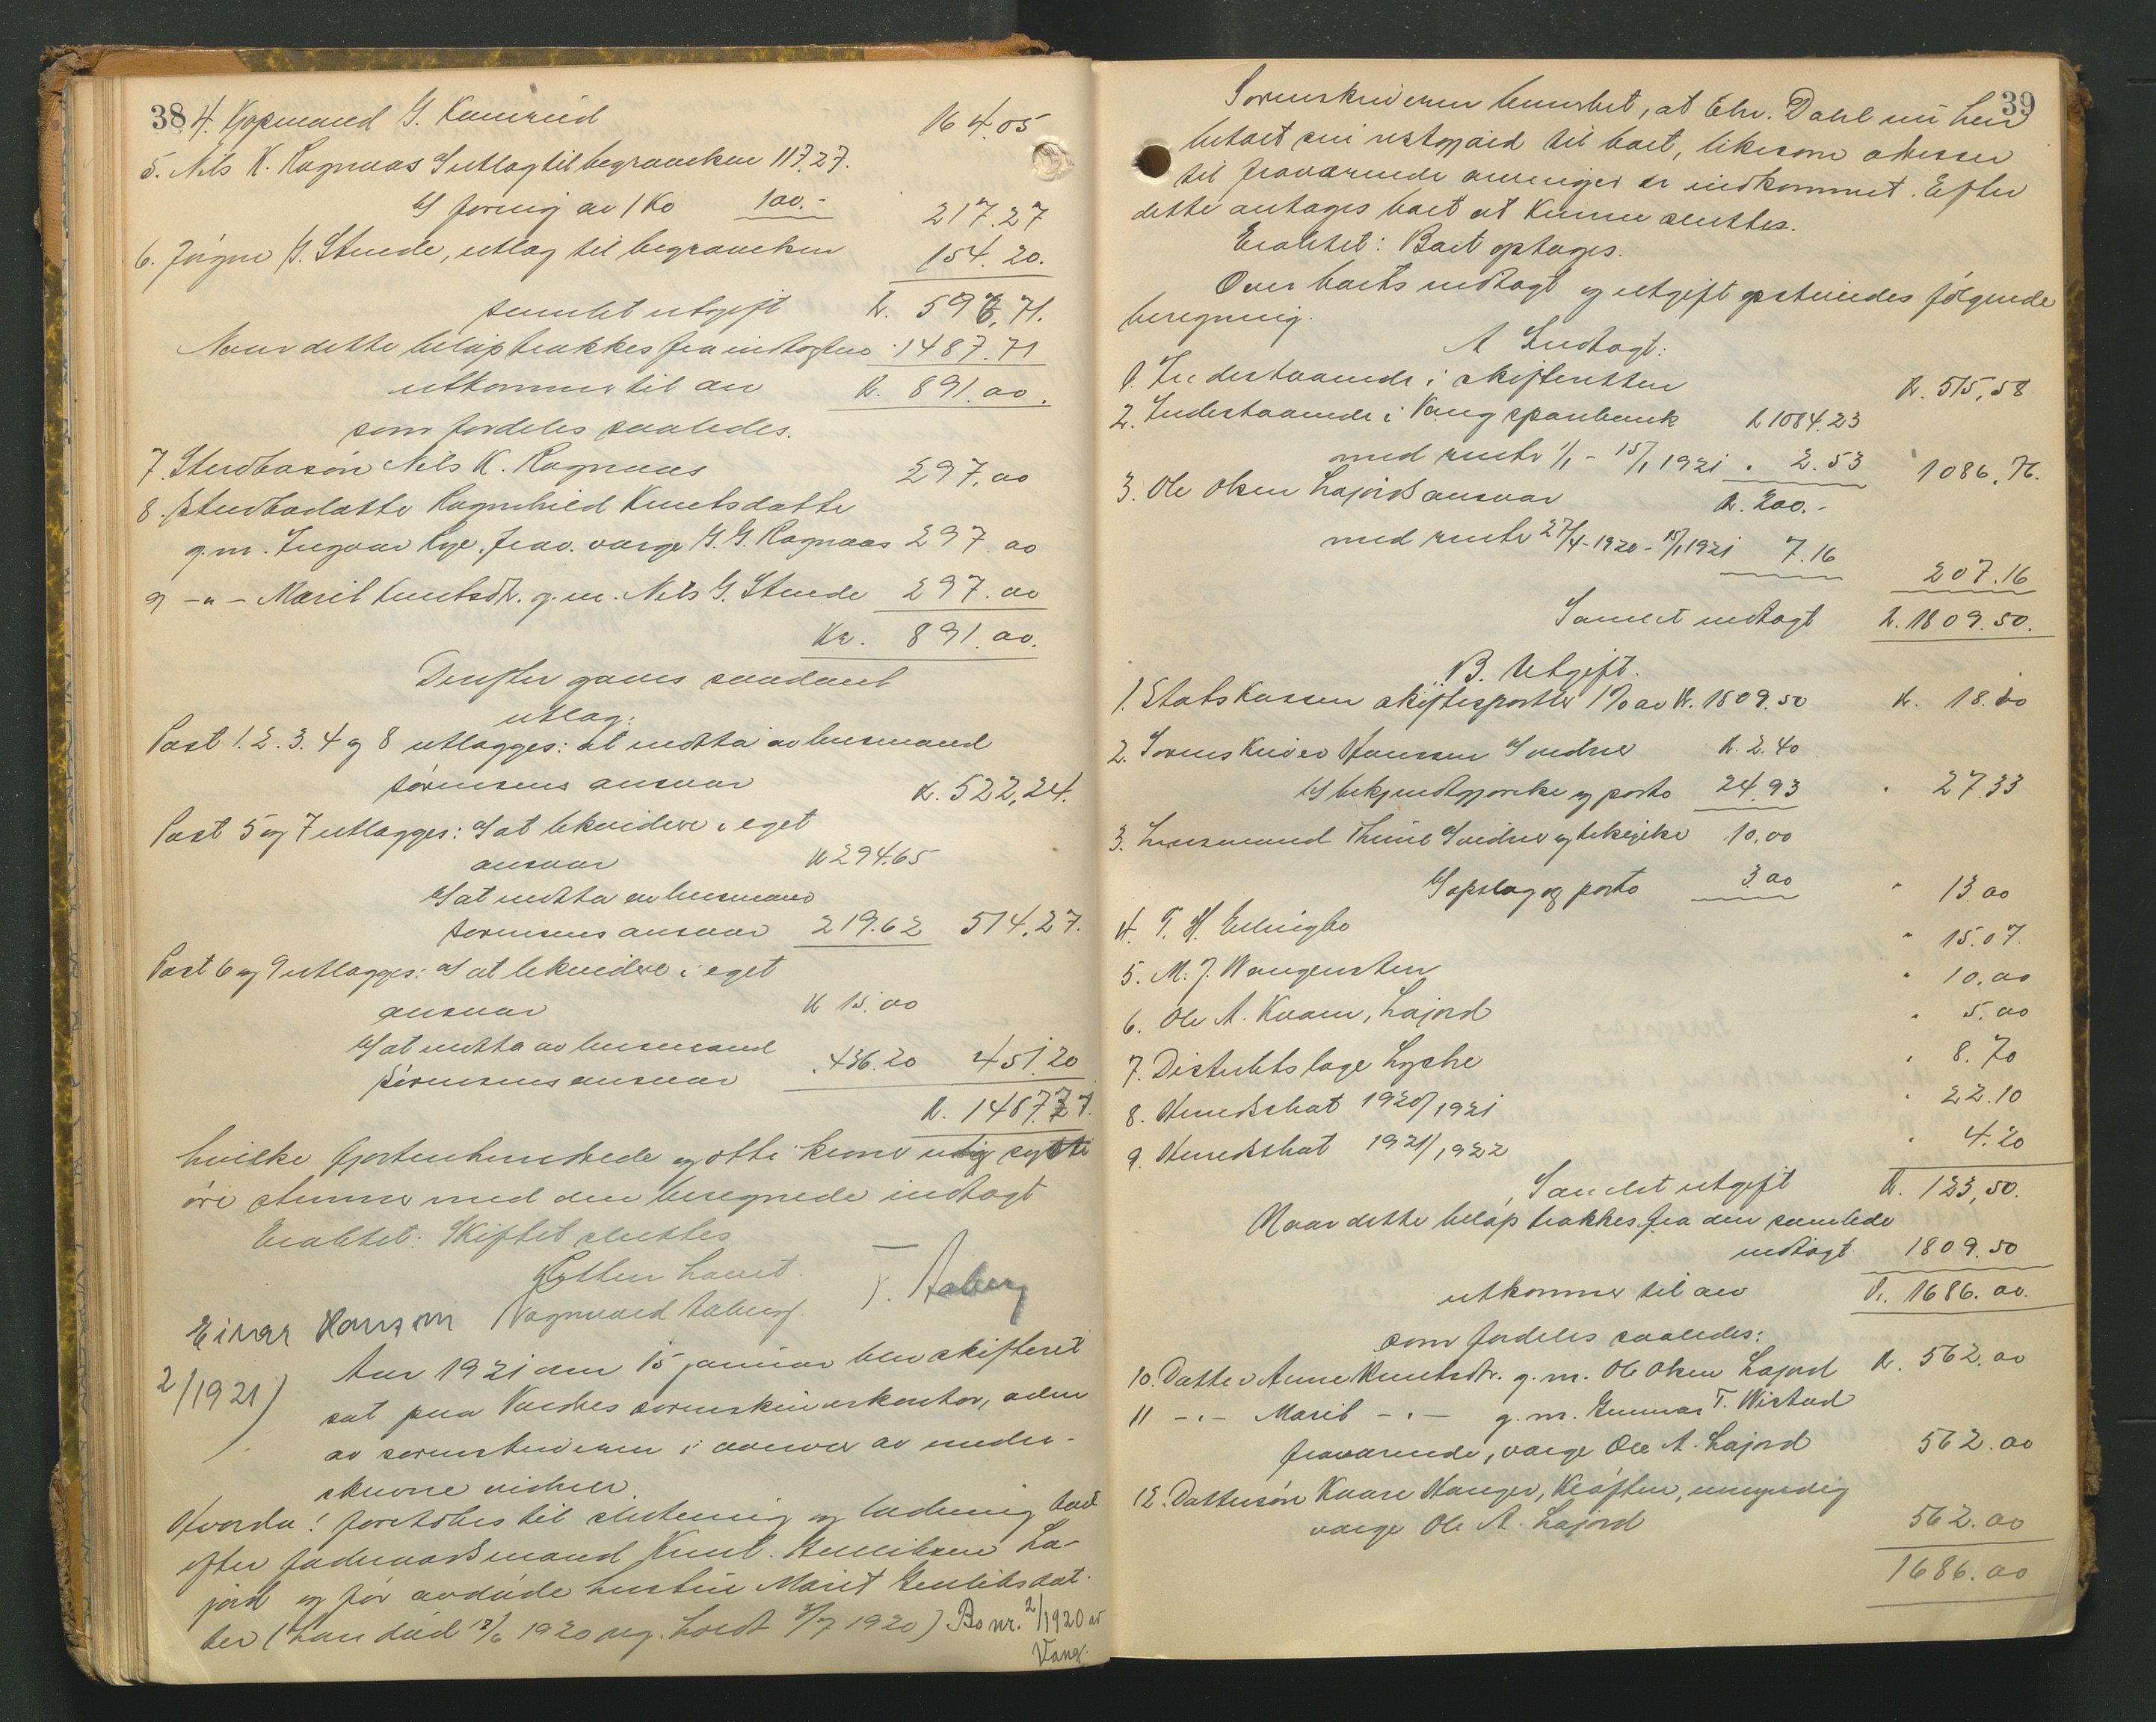 38
4. Kjøpmand G. Kamrud K 4.05
5. Nils K. Ragnaas utlæg til begravelsen 117.27.
for 1 Ko 100.- 217.27
6. Jørgen G. Stende, utlæg til begravelsen 154.20.
samlet utgift K. 596,71.
Naar dette beløp trækkes fra indtægten 1487.71
utkommer til arv K. 891.00.
som fordeles saaledes.
7. Stedbasøn Nils K. Ragnaas 297.00
8. Stedbadatter Ragnhild Knutsdatter
g.m. Ingvar Rye, frav. værge G. G. Ragnaas 297.00
9 -"- Marit Knutsdtr. g.m. Nils G. Stende 297.00
Kr. 891.00.
Derefter gaves saadant
utlæg:
Post 1. 2. 3. 4 og 8 utlægges: at motta av lensmand
Sørensens ansvar K. 522,24.
Post 5 og 7 utlægges: at likvidere i eget
ansvar K 294.65
at motta av lensmand
Sørensens ansvar 219.62 514,27.
Post 6 og 9 utlægges: at likvidere i eget
ansvar K 15.00
at motta av lensmand
Sørensens ansvar 436.20 451.20
K. 1487.71.
hvilke fjortenhundrede og otti kroner og sytti
øre stemmer med den beregnede indtægt
Eragtet: Skiftet sluttes
Retten hævet.
T. Aaberg
Einar Hansen Vagnvald Aaberg.
2/1921) Aar 1921 den 15 januar blev skifteret
sat paa Valdres sorenskriverkontor, adm
av sorenskriveren i nærvær av under-
skrevne vidner.
Hvorda! foretokes til slutning og lodning boet
efter føderaadsmand Knut Gulliksen La-
jord og før avdøde hustru Marit Gulliksdat-
ter (han død 12/6 1920 reg. holdt 3/7 1920) Bo nr. 2/1920 av
Vang.
39
Sorenskriveren bemerket, at Ehr. Dahl nu har
betalt sin restgjæld til boet, likesom adresser
til fraværende arvinger er indkommet. Efter
dette antages boet at kunne sluttes.
Eragtet: Boet optages.
Over boets indtægt og utgift opstilledes følgende
beregning.
A Indtægt:
1. Indestaaende i skifteretten K. 515,58
2. Indestaaende i Vang sparebank K 1084.23
med renter 1/1 - 15/1 1921 . 2.53 1086,76.
3. Ole Olsen Lajords ansvar K. 200.-
med renter 27/4-1920 - 15/1 1921 7.16
207.16
Samlet indtægt K. 1809.50.
B. Utgift.
1. Statskassen skiftesportler 1% av K. 1809.50 K. 18.10
2. Sorenskriver Hanssen vidner K. 2.40
bekjendtgjørelse og porto 24.93 " 27.33
3. Lensmand Thune vidner og 10.00
opslag og porto 3.00 " 13.00
4. T. H. Ellingbø " 15.07.
5. M. J. Wangensten " 10.00
6. Ole A. Kvam, Lajord " 5.00
7. Distriktslæge Lyche " 8.70
8. Herredskat 1920/1921 " 22.10
9. Herredskat 1921/1922 " 4.20
Samlet utgift K. 123,50.
Naar dette beløp trækkes fra den samlede
indtægt 1809.50
utkommer til arv K. 1686.00.
som fordeles saaledes:
10. Datter Anne Knutsdtr. g.m. Ole Olsen Lajord K. 562.00
11 -"- Marit -"- g.m. Gunnar T. Wistad
fraværende, værge Ole A. Lajord 562.00
12. Dattersøn Kaare Hanger, Kløften, umyndig
værge Ole A. Lajord 562.00
1686.00